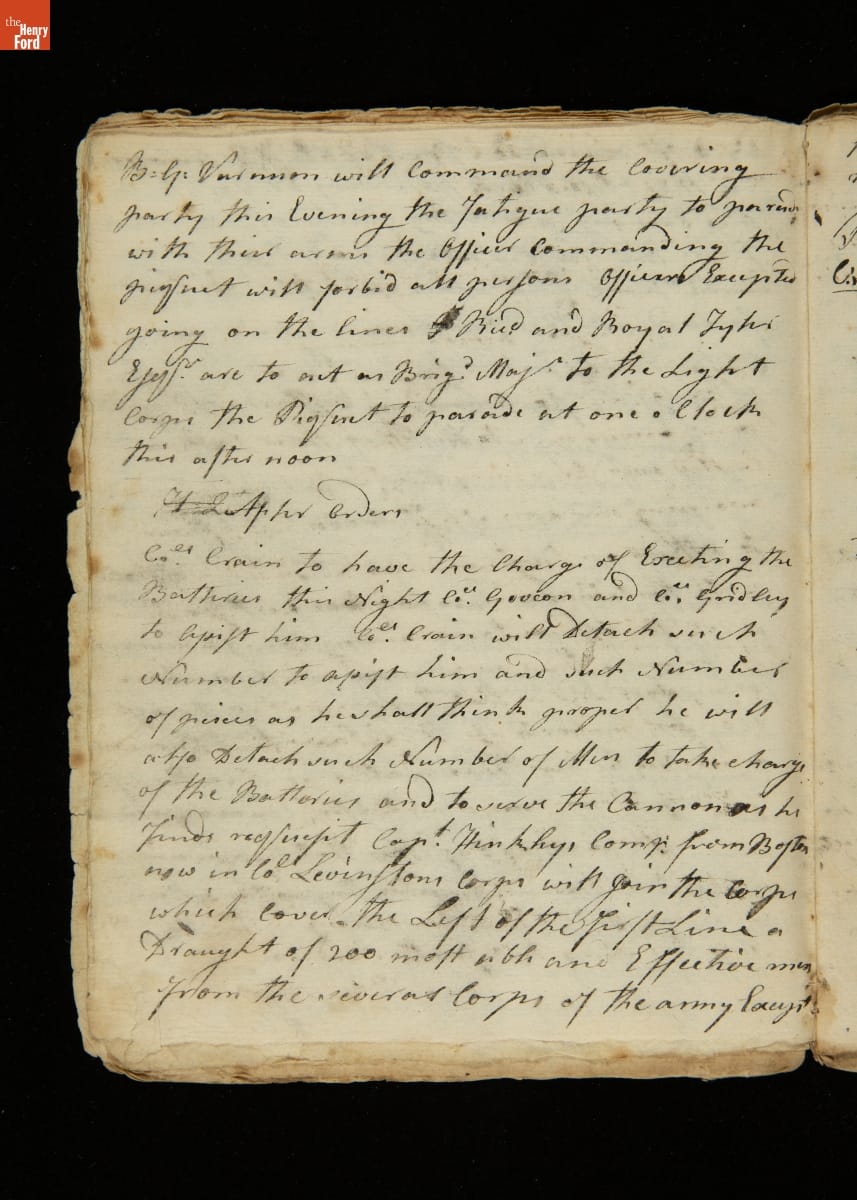 the
Henry
Ford
B: G: Varnum will Command the Covering
party this Evening the Fatigue party to parade
with thier arms the Officer Commanding the
piqquet will forbid all persons Officers Excepted
going on the lines Ricd and Royal Tyler
Esqrs are to act as Brigd Majrs to the Light
Corps the Piqquet to parade at one o Clock
this after noon
After orders
Coll. Crain to have the Charge of Erecting the
Batteries this Night Coll. and Coll. Gridley
to assist him Coll. Crain will Detach such
Number to assist him and such Number
of pieces as he shall think proper he will
also Detach such Number of Men to take charge
of the Batteries and to serve the Cannon as he
finds requisit Capt. Hinkleys Comp. from Boston
now in Col Levinstons Corps will Join the Corps
which cover the Left of the First Line a
Draught of 200 most able and Effective men
from the several Corps of the army Except